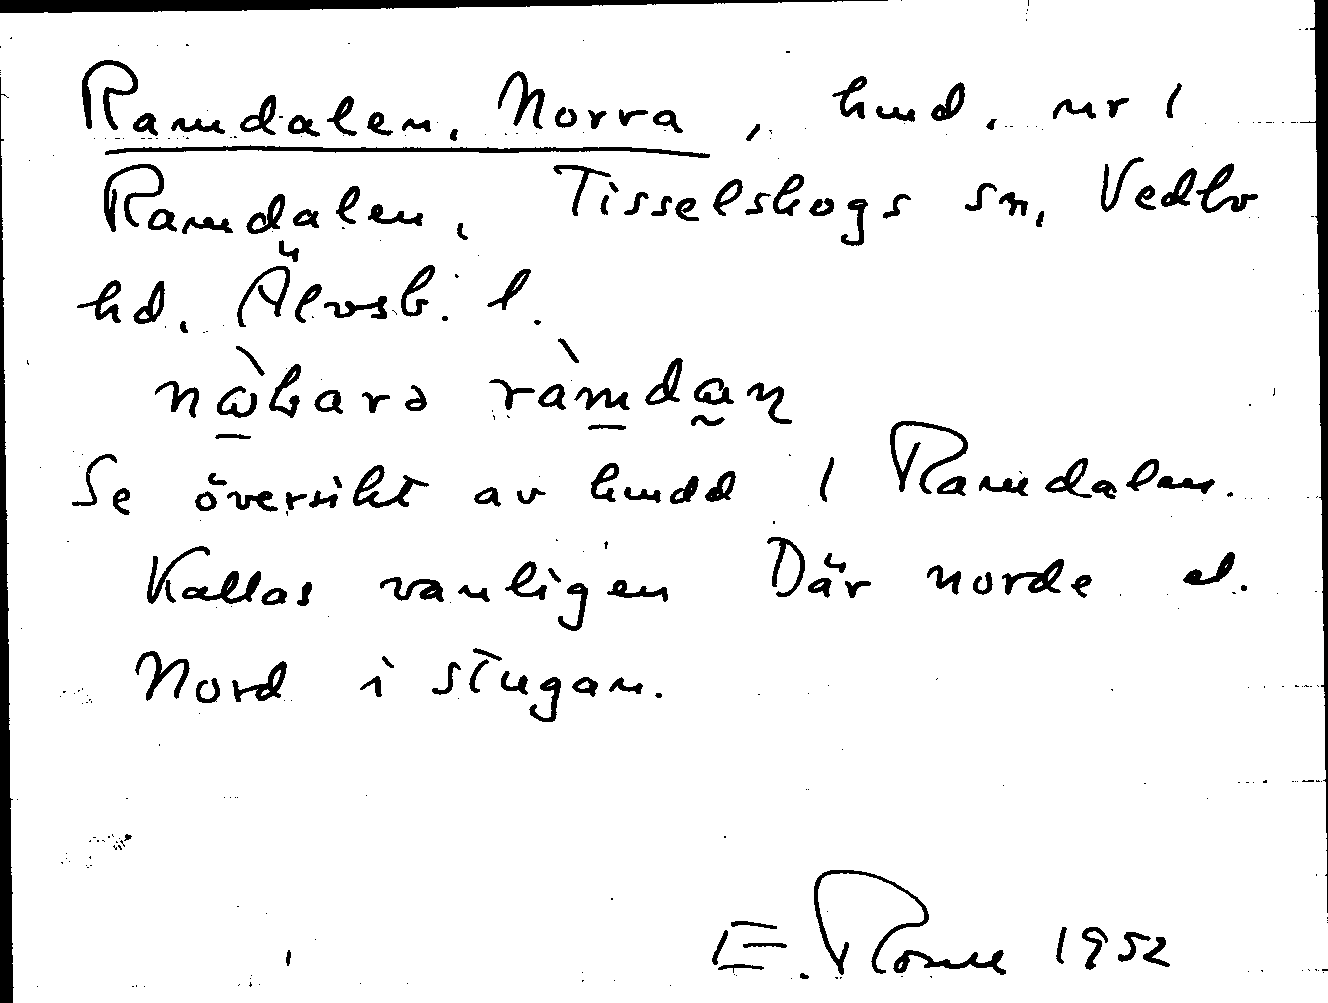 Ramdalen, Norra, hmd. nr 1
Ramdalen, Tisselskogs sn, Vedbo
hd, Älvsb. l.
Se översikt av hmdd 1 Ramdalen.
Kallas vanligen Där norde el.
Nord i stugan.
E. Rosne 1952